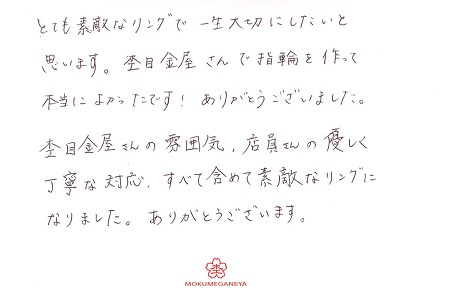 とても素敵なリングで一生大切にしたいと
思います。杢目金屋さんで指輪を作って
本当によかったです！ありがとうございました。
杢目金屋さんの雰囲気、店員さんの優しく
丁寧な対応、すべて含めて素敵なリングに
なりました。ありがとうございます。
MOKUMEGANEYA